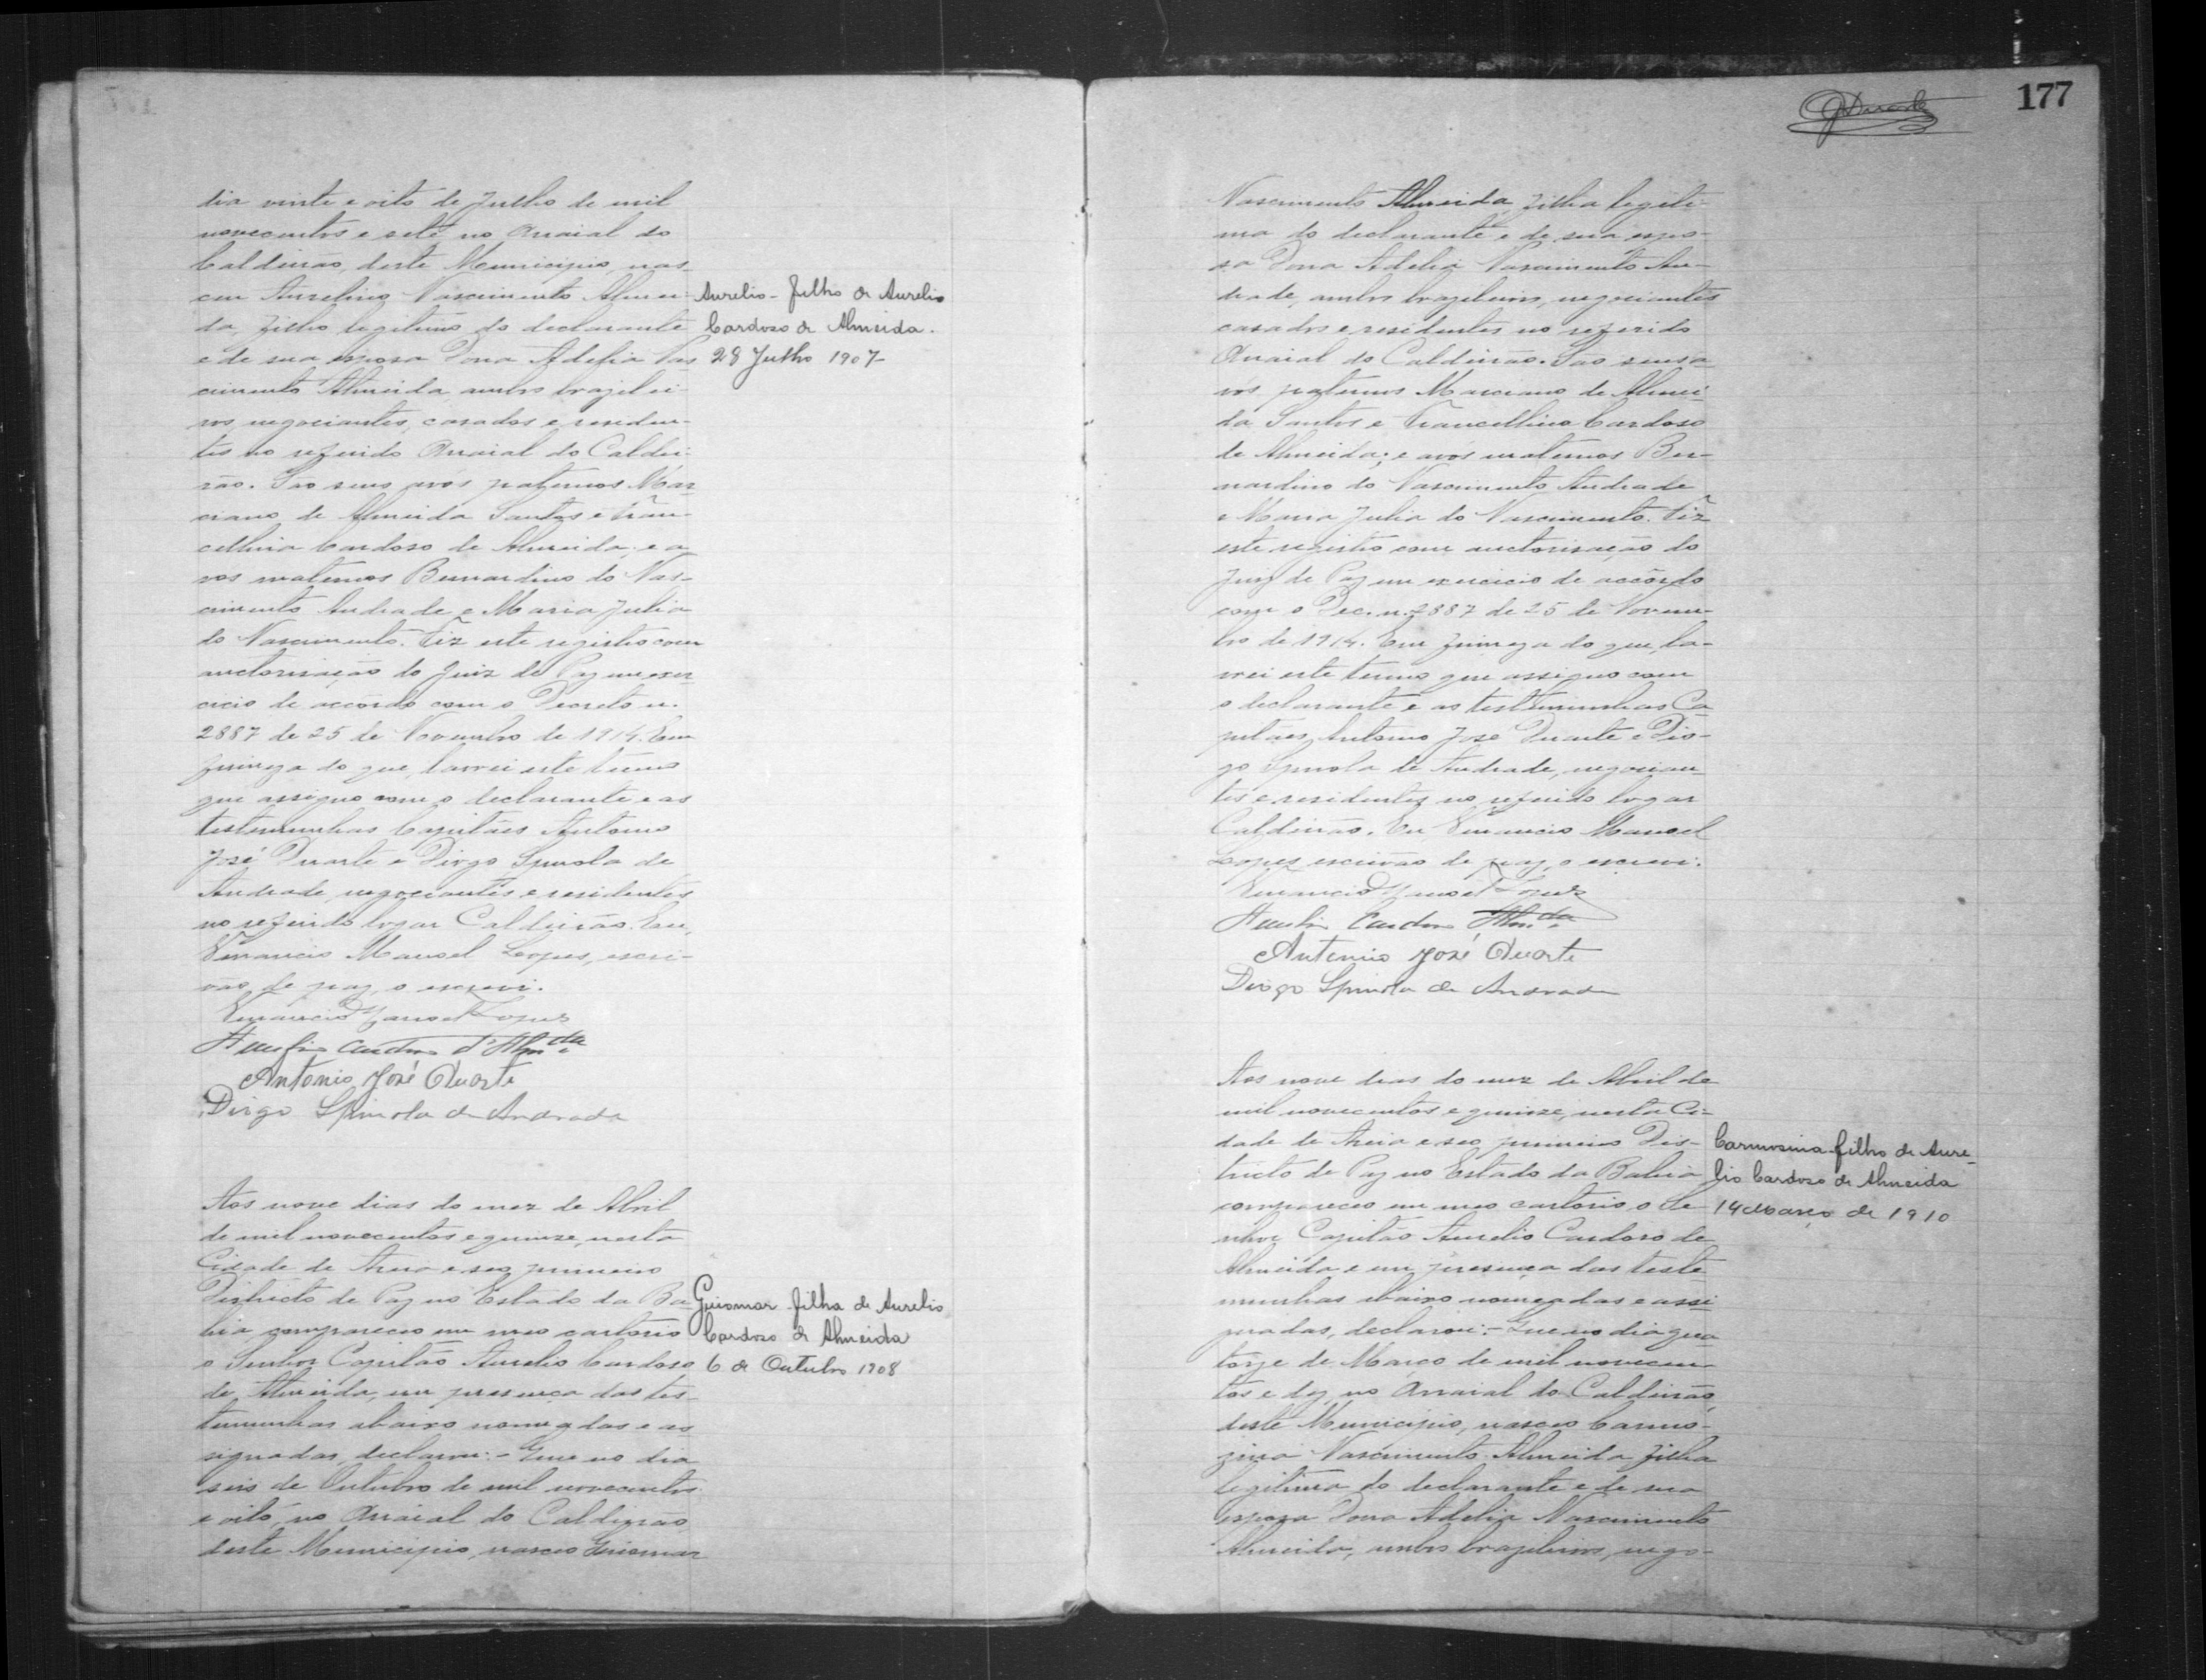 dia vinte e oito de Julho de mil
novecentos e sete no Arraial do
Caldeirão, deste Municipio, nas-
ceu Aurelino Nascimento Almei-
da, filho legitimo do declarante
e de sua esposa Dona Adelia Nas
cimento Almeida, ambos brazilei-
ros, negociantes, casados e residen-
tes no referido Arraial do Caldei-
rão. São seus avós paternos Mar
ciano de Almeida Santos e Fran-
cellina Cardoso de Almeida; e a
vos maternos Bernardino do Nas-
cimento Andrade e Maria Julia
do Nascimento. Fiz este registro com
auctorisação do Juiz de Paz em exer
cicio de accôrdo com o Decreto n.
2887 de 25 de Novembro de 1914. Em
firmeza do que, lavrei este termo
que assigno com o declarante e as
testemunhas Capitães Antonio
José Duarte e Diogo Spinola de
Andrade, negociantes e residentes
no referido logar Caldeirão. Eu,
Venancio Manoel Lopes, escri-
vão de paz, o escrevi.
Venancio Manoel Lopes
Aurelio Cardoso d'Almda
Antonio José Duarte
Diogo Spinola de Andrade
Aurelio - filho de Aurelio
Cardoso de Almeida.
28 Julho 1907
Aos nove dias do mez de Abril
de mil novecentos e quinze, nesta
Cidade de Areia e seo primeiro
Districto de Paz no Estado da Ba
hia compareceo em meo cartorio
o Senhor Capitão Aurelio Cardoso
de Almeida, em presença das tes-
temunhas abaixo nomeadas e as
signadas, declarou: - Que no dia
seis de Outubro de mil novecentos
e oito, no Arraial do Caldeirão
deste Municipio, nasceo Guiomar
Guiomar filha de Aurelio
Cardoso de Almeida
6 de Outubro 1908
177
Nascimento Almeida, filha legiti-
ma do declarante e de sua espo-
sa Dona Adelia Nascimento An-
drade, ambos brazileiros, negociantes
casados e residentes no referido
Arraial do Caldeirão. São seus a
vós paternos Marciano de Almei-
da Santos e Francellina Cardoso
de Almeida; e avós maternos Ber-
nardino do Nascimento Andrade
e Maria Julia do Nascimento. Fiz
este registro com auctorisação do
Juiz de Paz em exercicio de accôrdo
com o Dec. n. 2887 de 25 de Novem-
bro de 1914. Em firmeza do que, la-
vrei este termo que assigno com
o declarante e as testemunhas Ca
pitães Antonio José Duarte e Dio-
go Spinola de Andrade, negocian
tes e residentes no referido logar
Caldeirão. Eu Venancio Manoel
Lopes escrivão de paz, o escrevi.
Venancio Manoel Lopes
Aurelio Cardoso Almda
Antonio José Duarte
Diogo Spinola de Andrade
Aos nove dias do mez de Abril de
mil novecentos e quinze, nesta Ci-
dade de Areia e seo primeiro Dis-
tricto de Paz no Estado da Bahia
compareceo em meo cartorio o Se
nhor Capitão Aurelio Cardoso de
Almeida e em presença das teste
munhas abaixo nomeadas e assi
gnadas, declarou: - Que no dia qua
torze de Março de mil novecen
tos e dez, no Arraial do Caldeirão,
deste Municipio, nasceo Carmo-
zina Nascimento Almeida filha
legitima do declarante e de sua
esposa Dona Adelia Nascimento
Almeida, ambos brazileiros, nego-
Carmosina filho de Aure-
lio Cardoso de Almeida
14 Março de 1910